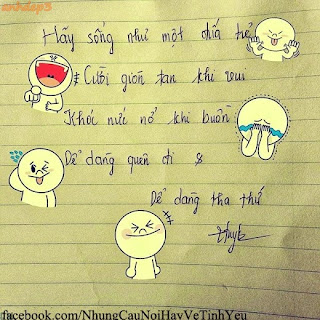 anhdep3
Hãy sống như một đứa trẻ
Cười giòn tan khi vui
Khóc nức nở khi buồn
Dể dàng quên đi &
Dể dàng tha thứ
facebook.com/NhungCauNoiHayVeTinhYeu